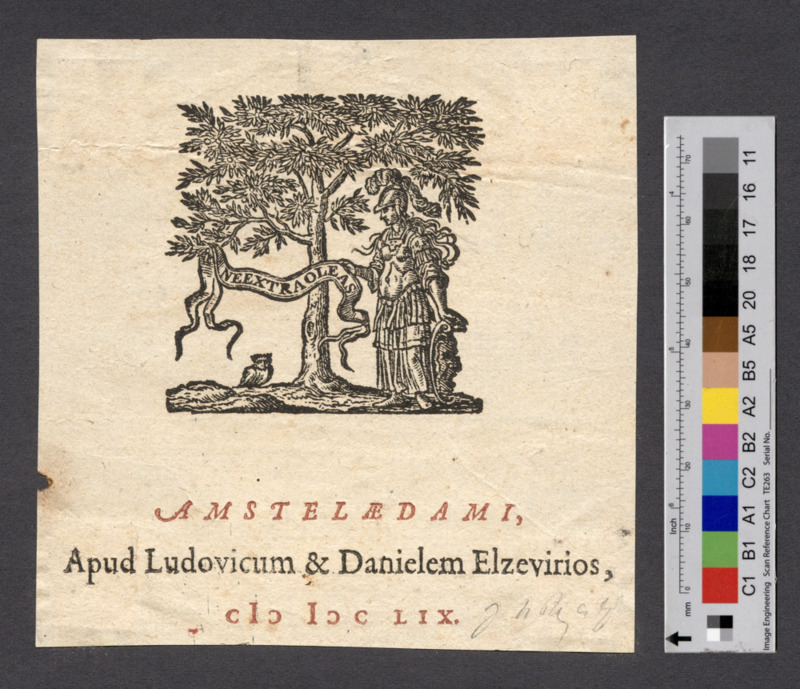 NEEXTRAOLEAS
AMSTELÆDAMI,
Apud Ludovicum & Danielem Elzevirios,
cIↄ Iↄc LIX.
11
16
17
18
20
A5
B5
A2
B2
C2
A1
B1
C1
70
60
50
40
30
20
10
0
mm
Inch
Image Engineering Scan Reference Chart TE263 Serial No.